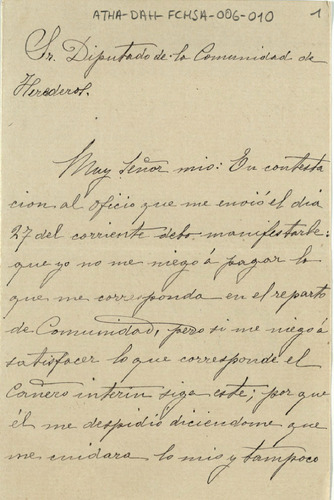 ATHA-DAH-FCHSA-006-010
1
Sr. Diputado de la Comunidad de
Herederos.
Muy Señor mio: En contesta
cion al oficio que me envió el dia
27 del corriente debo manifestarle:
que yo no me niego á pagar lo
que me corresponda en el reparto
de Comunidad, pero si me niego á
satisfacer lo que corresponde el
Cañero interin siga este; por que
él me despidio diciendome que
me cuidara lo mio y tampoco